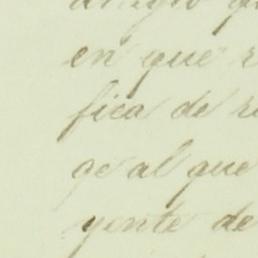 en que
fica de
ge al que
yente de